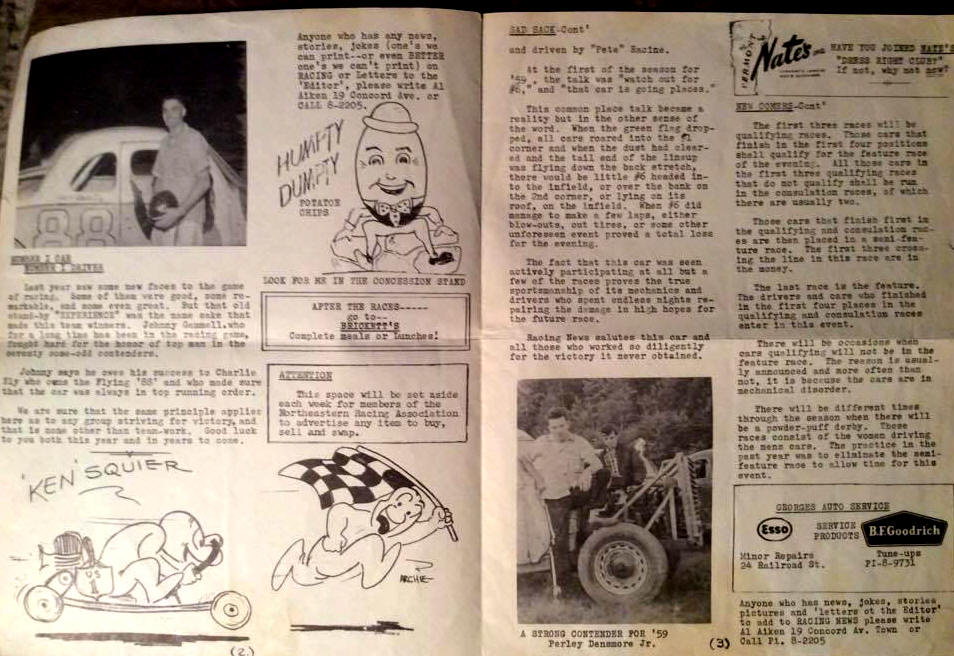 Anyone who has any news,
stories, jokes (one's we
can print--or even BETTER
one's we can't print) on
RACING or Letters to the
'Editor', please write Al
Aiken 19 Concord Ave. or
CALL 8-2205.
HUMPTY
DUMPTY
POTATOE
CHIPS
88
NUMBER I CAR
NUMBER I DRIVER
LOOK FOR ME IN THE CONCESSION STAND
Last year saw some new faces to the game
of racing. Some of them were good, some re-
markable, and some even great. But that old
stand-by "EXPERIENCE" was the name sake that
made this team winners. Johnny Gammell, who
for a long time has been in the racing game,
fought hard for the honor of top man in the
seventy some-odd contenders.
Johnny says he owes his success to Charlie
Ely who owns the Flying '88' and who made sure
that the car was always in top running order.
We are sure that the same principle applies
here as to any group striving for victory, and
that is none other than team-work. Good luck
to you both this year and in years to come.
AFTER THE RACES-----
go to--
BRICKETT'S
Complete meals or Lunches!
ATTENTION
This space will be set aside
each week for members of the
Northeastern Racing Association
to advertise any item to buy,
sell and swap.
'KEN' SQUIER
US
ARCHIE
(2.)
SAD SACK-Cont'
and driven by "Pete" Racine.
At the first of the season for
'59, the talk was "watch out for
#6," and "that car is going places."
This common place talk became a
reality but in the other sense of
the word. When the green flag drop-
ped, all cars roared into the #1
corner and when the dust had clear-
ed and the tail end of the lineup
was flying down the back stretch,
there would be little #6 headed in-
to the infield, or over the bank on
the 2nd corner, or lying on its
roof, on the infield. When #6 did
manage to make a few laps, either
blow-outs, cut tires, or some other
unforeseen event proved a total loss
for the evening.
The fact that this car was seen
actively participating at all but a
few of the races proves the true
sportsmanship of its mechanics and
drivers who spent endless nights re-
pairing the damage in high hopes for
the future race.
Racing News salutes this car and
all those who worked so diligently
for the victory it never obtained.
A STRONG CONTENDER FOR '59
Perley Densmore Jr.
(3)
VERMONT
Nate's INC.
HAVE YOU JOINED NATE'S
"DRESS RIGHT CLUB?"
If not, why not now?
NEW COMERS-Cont'
The first three races will be
qualifying races. Those cars that
finish in the first four positions
shall qualify for the feature race
of the evening. All those cars in
the first three qualifying races
that do not qualify shall be run
in the consulation races, of which
there are usually two.
Those cars that finish first in
the qualifying and consulation rac-
es are then placed in a semi-fea-
ture race. The first three cross-
ing the line in this race are in
the money.
The last race is the feature.
The drivers and cars who finished
in the first four places in the
qualifying and consulation races
enter in this event.
There will be occasions when
cars qualifying will not be in the
feature race. The reason is usual-
ly announced and more often than
not, it is because the cars are in
mechanical disorder.
There will be different times
through the season when there will
be a powder-puff derby. These
races consist of the women driving
the mens cars. The practice in the
past year was to eliminate the semi-
feature race to allow time for this
event.
GEORGES AUTO SERVICE
Esso
SERVICE
PRODUCTS
B.F.Goodrich
Minor Repairs
24 Railroad St.
Tune-ups
PI-8-9731
Anyone who has news, jokes, stories
pictures and 'letters ot the Editor'
to add to RACING NEWS please write
Al Aiken 19 Concord Av. Town or
Call Pi. 8-2205